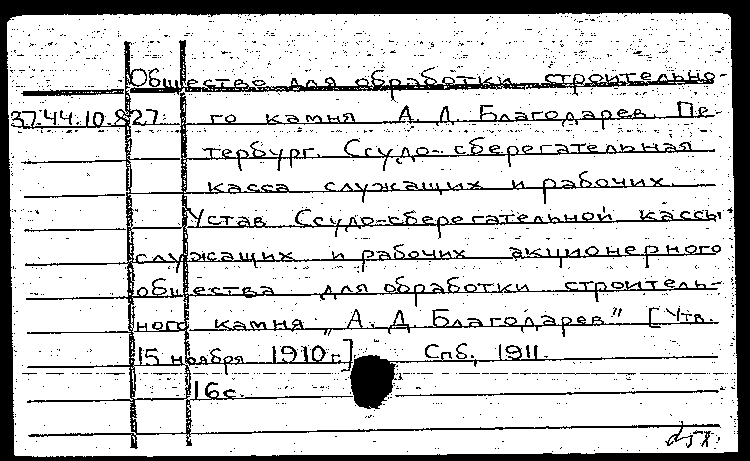 Общество для обработки строительно-
37.44.10.827. го камня А. Д. Благодарев. Пе-
тербург. Ссудо-сберегательная
касса служащих и рабочих.
Устав Ссудо-сберегательной кассы
служащих и рабочих акционерного
общества для обработки строитель-
ного камня "А. Д. Благодарев" [Утв.
15 ноября 1910 г.] Спб., 1911.
16 с.